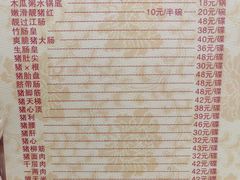 木瓜粥水锅底 18元/锅
嫩滑靓猪红 10元/半碗 20元/碗
靓过江肠 48元/碟
竹肠皇 48元/碟
爽脆猪大肠 40元/碟
生肠皇 46元/碟
猪肚尖 48元/碟
猪×根 30元/碟
猪胎盘 48元/碟
脐带肠 48元/碟
猪天梯 48元/碟
猪心顶 38元/碟
猪利 39元/碟
猪腰 46元/碟
猪肝 36元/碟
猪心 32元/碟
猪柳筋 42元/碟
猪面肉 42元/碟
千层肉 42元/碟
一两肉